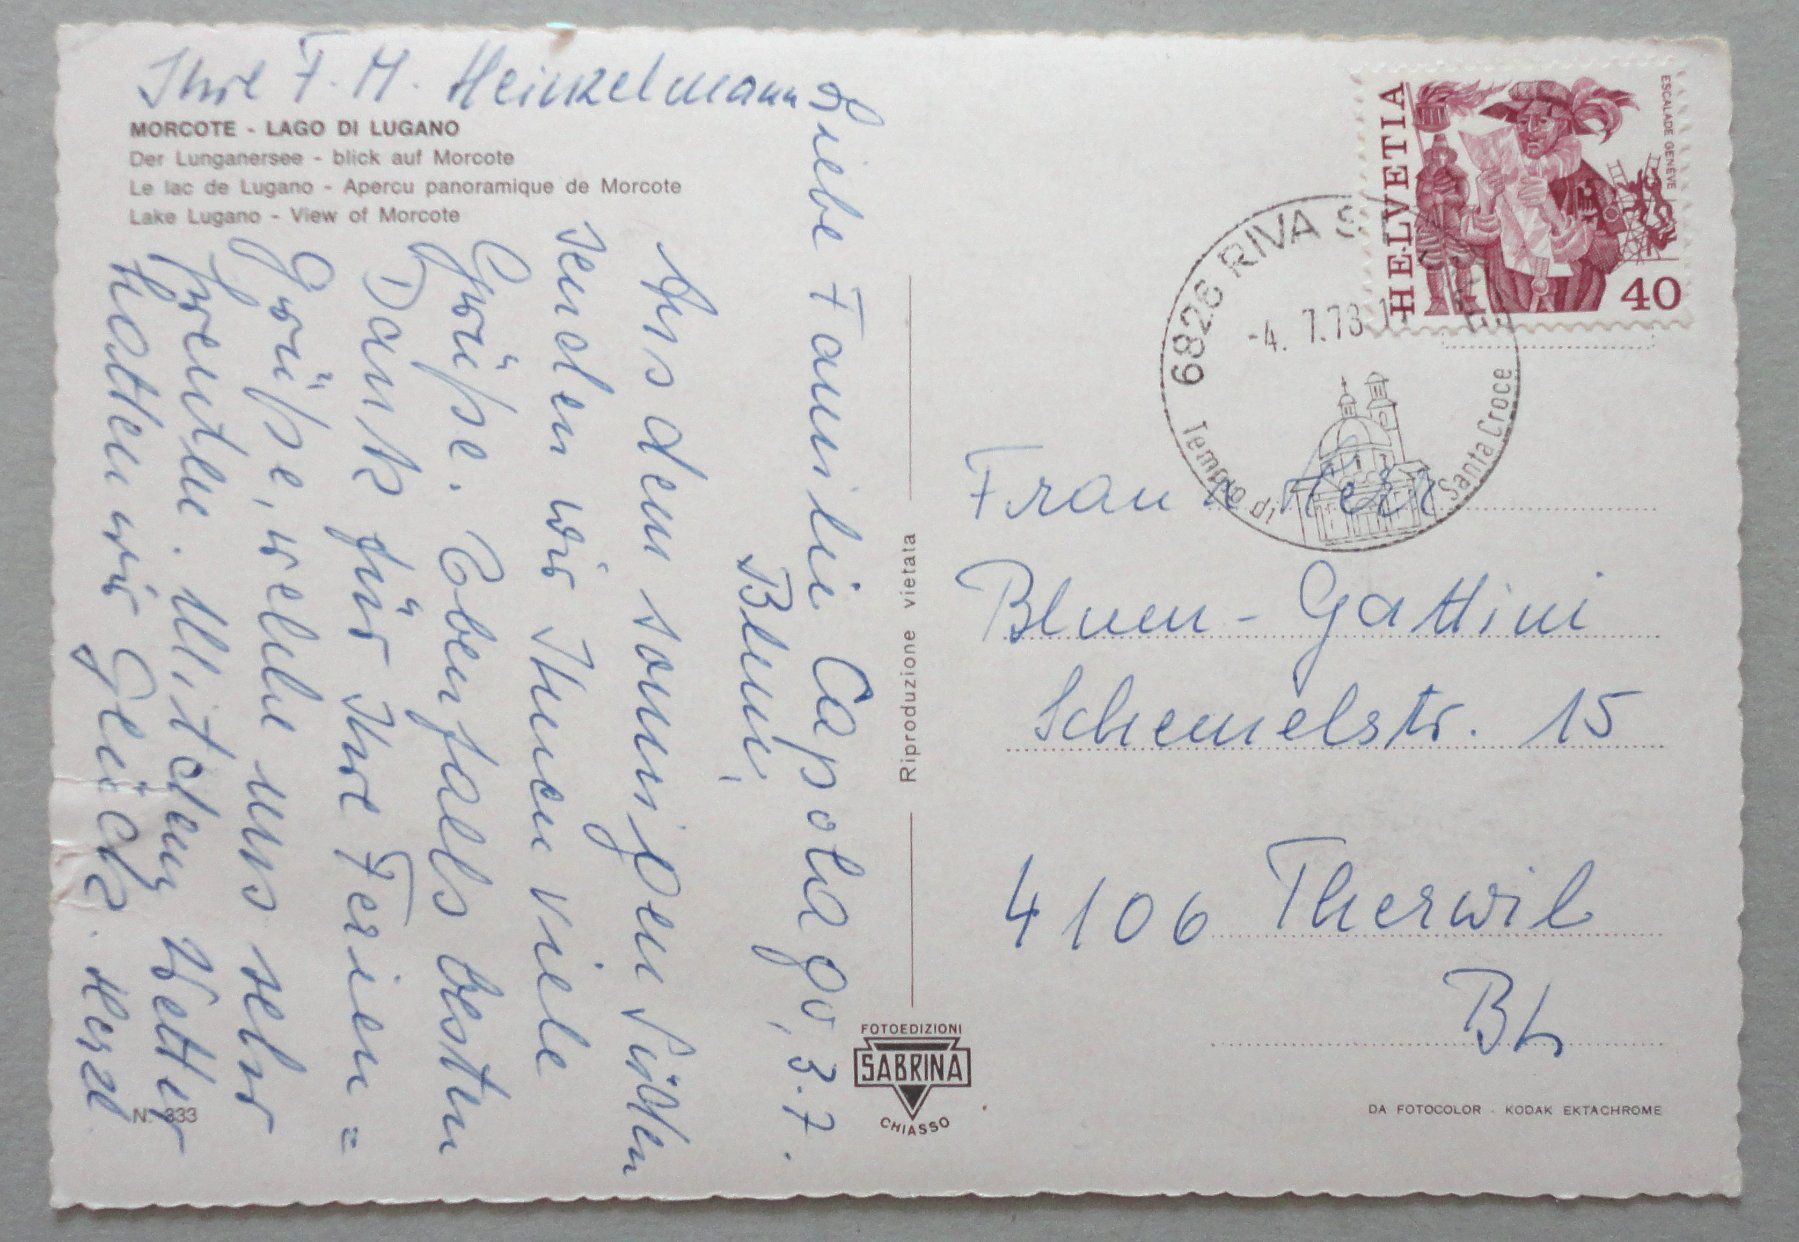 MORCOTE - LAGO DI LUGANO
Der Lunganersee - blick auf Morcote
Le lac de Lugano - Apercu panoramique de Morcote
Lake Lugano - View of Morcote
Capolago, 3.7.
Liebe Familie
Blum,
Aus dem sonnigen Süden
senden wir Ihnen viele
Grüße. Ebenfalls besten
Dank für Ihre Ferien=
Grüße, welche uns sehr
freuten. Mit dem Wetter
hatten wir Glück. Herzl.
Ihre F. M. Heinzelmann
N. 333
Riproduzione vietata
FOTOEDIZIONI
SABRINA
CHIASSO
HELVETIA
ESCALADE GENÈVE
40
6826 RIVA S
-4. 7.78
Tempio di Santa Croce
Frau
Blum - Gattini
Schemelstr. 15
4106 Therwil
BL
DA FOTOCOLOR - KODAK EKTACHROME